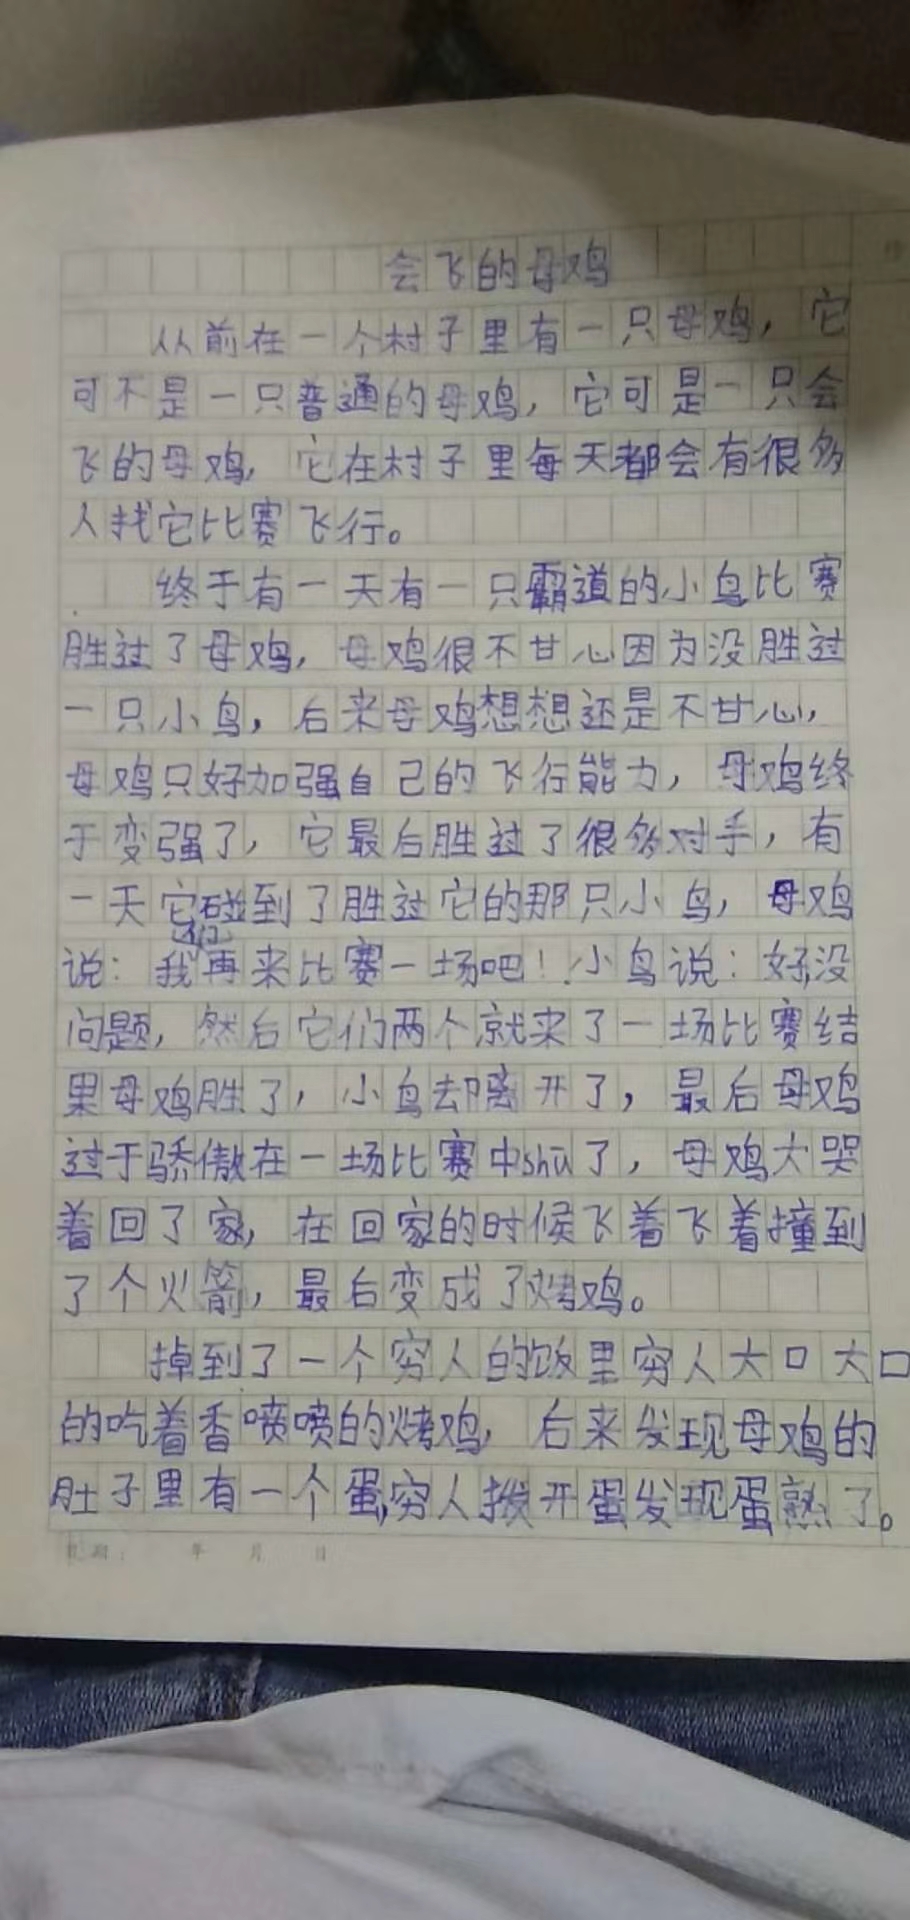 会飞的母鸡
从前在一个村子里有一只母鸡，它
可不是一只普通的母鸡，它可是一只会
飞的母鸡，它在村子里每天都会有很多
人找它比赛飞行。
终于有一天有一只霸道的小鸟比赛
胜过了母鸡，母鸡很不甘心因为没胜过
一只小鸟，后来母鸡想想还是不甘心，
母鸡只好加强自己的飞行能力，母鸡终
于变强了，它最后胜过了很多对手，有
一天它碰到了胜过它的那只小鸟，母鸡
说：我们再来比赛一场吧！小鸟说：好，没
问题，然后它们两个就来了一场比赛结
果母鸡胜了，小鸟去离开了，最后母鸡
过于骄傲在一场比赛中shū了，母鸡大哭
着回了家，在回家的时候飞着飞着撞到
了个火箭，最后变成了烤鸡。
掉到了一个穷人的饭里穷人大口大口
的吃着香喷喷的烤鸡，后来发现母鸡的
肚子里有一个蛋，穷人拨开蛋发现蛋熟了。
年 月 日